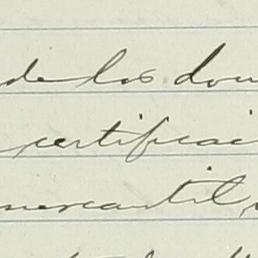 de los dou
certificaci
mercantil